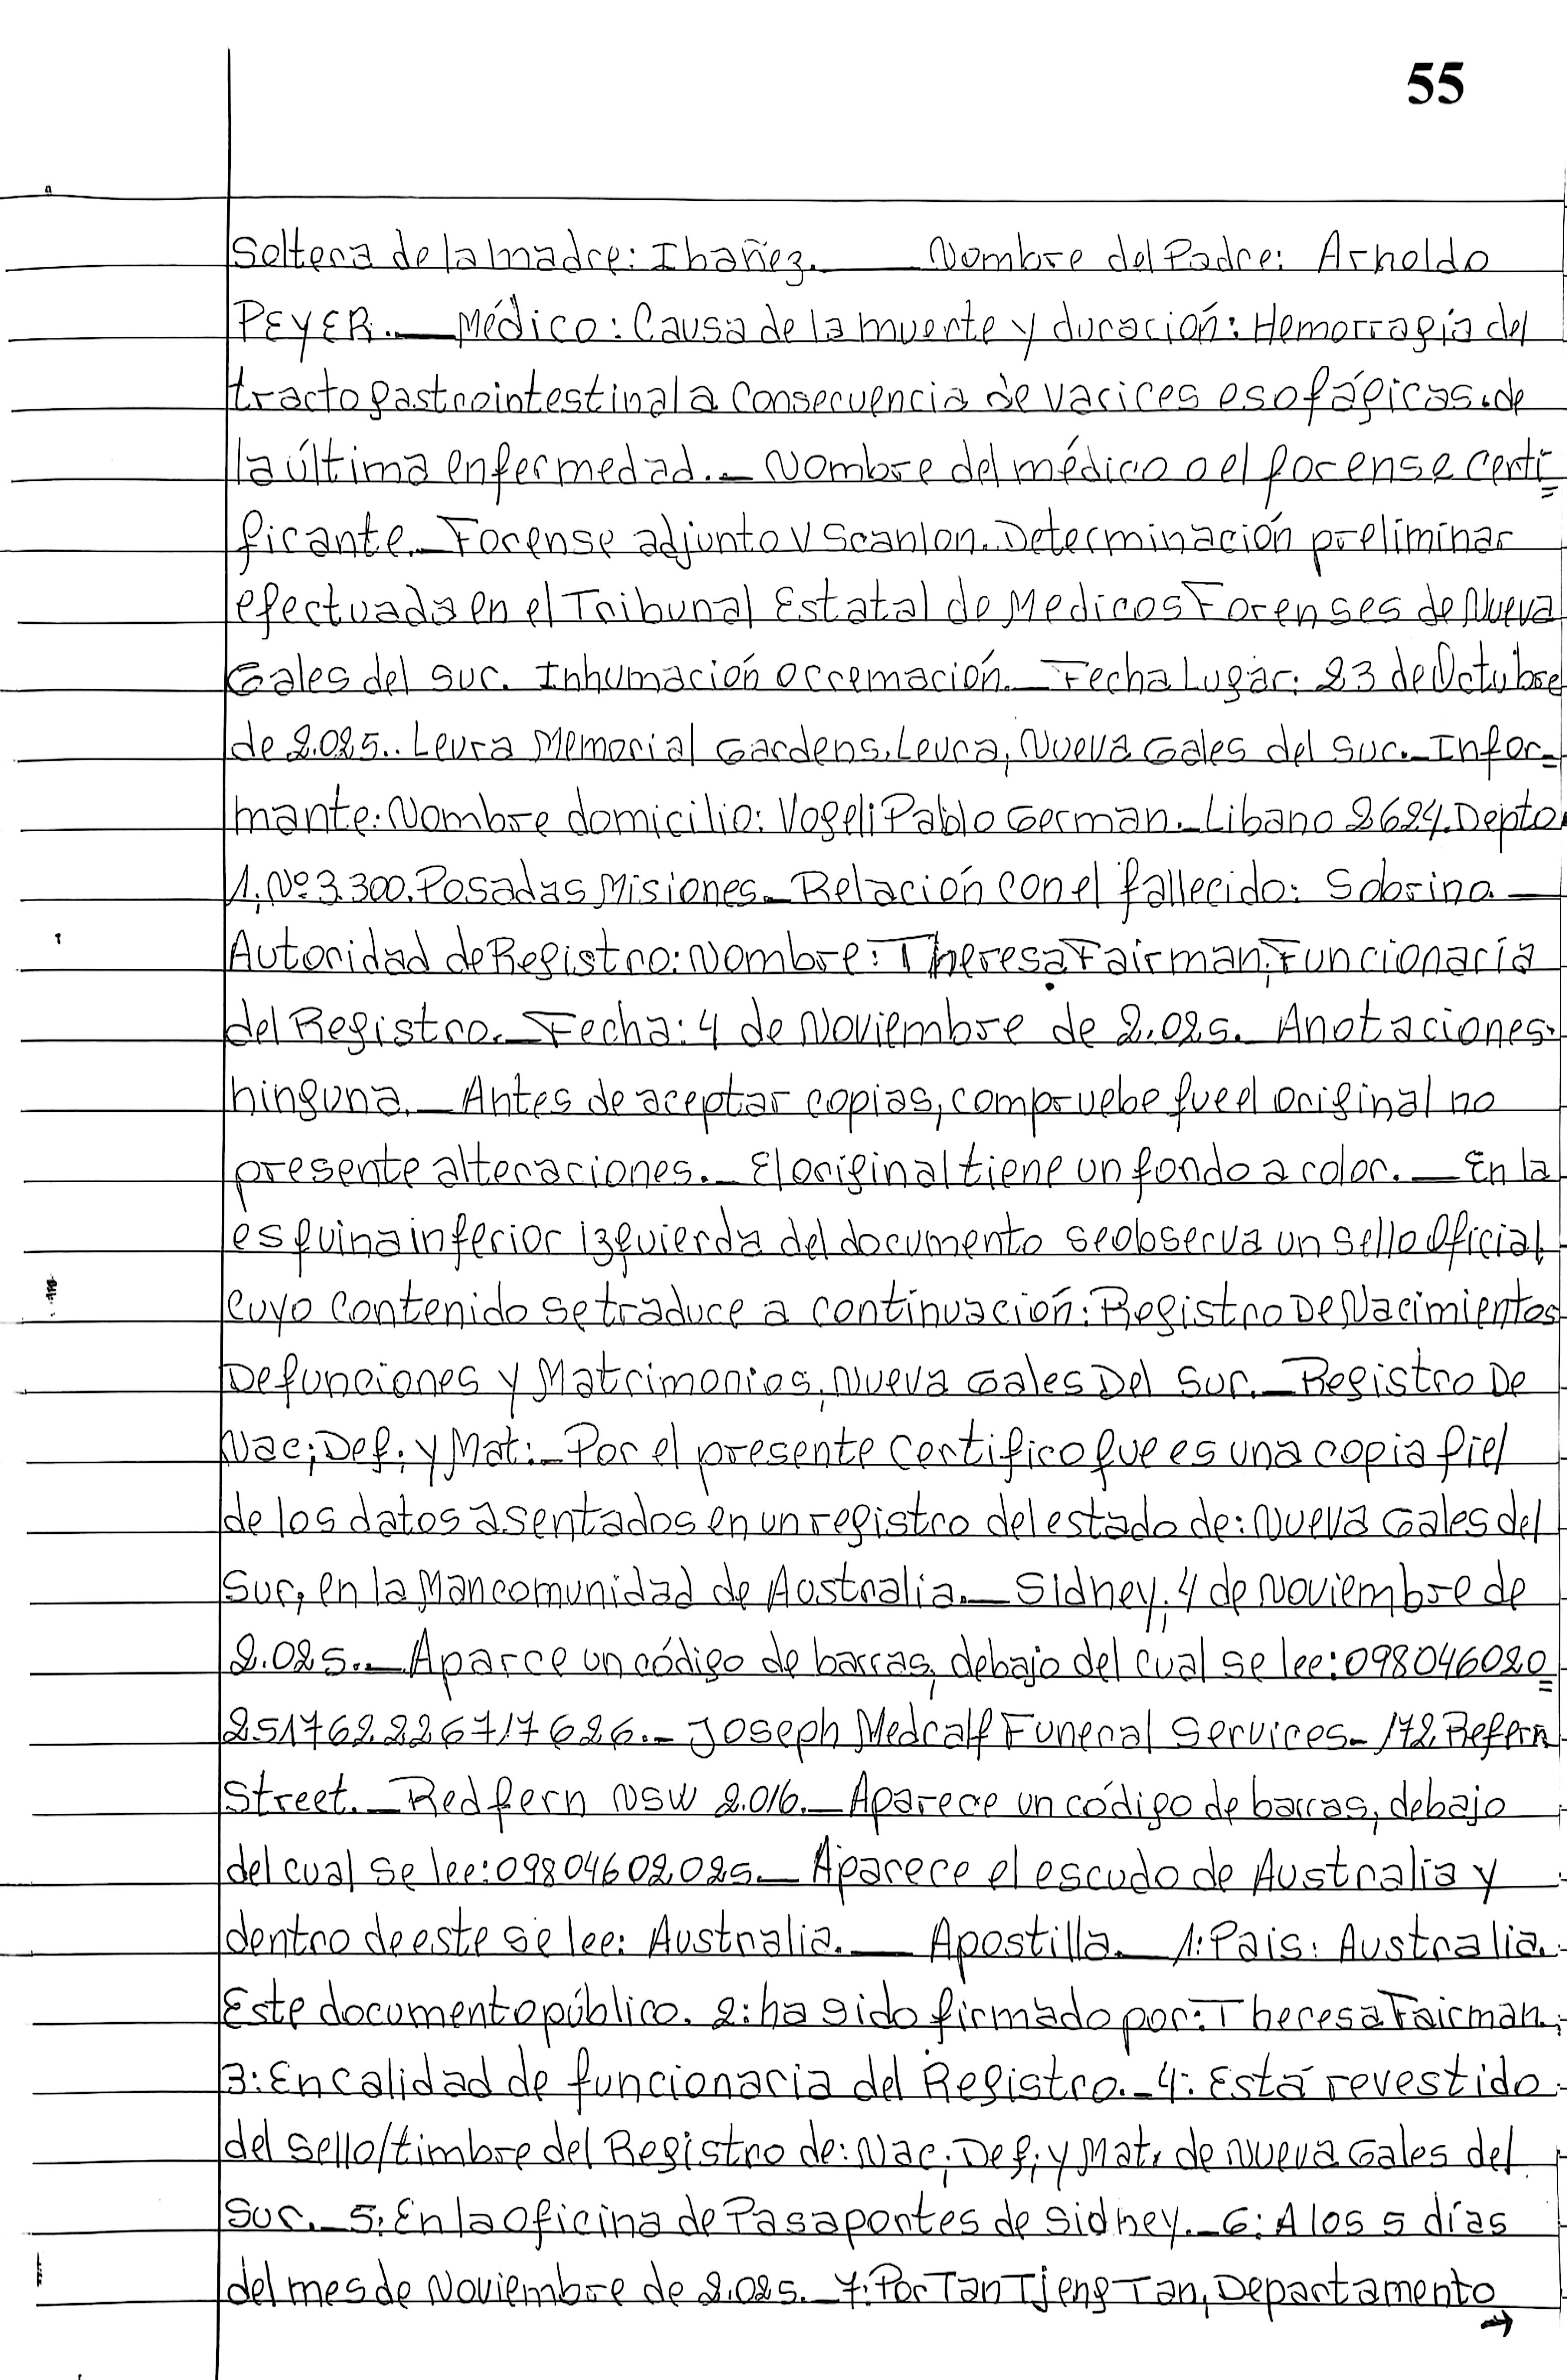 55
Soltera de la madre: Ibañez.__ Nombre del Padre: Arnoldo
PEYER.__ Médico: Causa de la muerte y duración: Hemorragia del
tracto gastrointestinal a consecuencia de varices esofágicas.de
la última enfermedad._ Nombre del médico o el forense certi=
ficante._Forense adjunto V Scanlon.Determinación preliminar
efectuada en el Tribunal Estatal de Medicos Forenses de Nueva
Gales del sur. Inhumación o cremación._ Fecha Lugar: 23 de Octubre
de 2.025.. Leura Memorial Gardens.Leura, Nueva Gales del sur._Infor=
mante:Nombre domicilio: Vogeli Pablo German._Libano 2624.Depto.
1,Nº3.300.Posadas Misiones._Relación con el fallecido: Sobrino.__
Autoridad de Registro:Nombre:Theresa Fairman,Funcionaria
del Registro._ Fecha:4 de Noviembre de 2.025._ Anotaciones:
ninguna._ Antes de aceptar copias, compruebe que el original no
presente alteraciones._ El original tiene un fondo a color.__ En la
esquina inferior izquierda del documento se observa un sello Oficial,
cuyo contenido se traduce a continuación:Registro De Nacimientos
Defunciones y Matrimonios, Nueva Gales Del Sur._Registro De
Nac;Def; y Mat:_ Por el presente certifico que es una copia fiel
de los datos asentados en un registro del estado de: Nueva Gales del
Sur, en la Mancomunidad de Australia._ Sidney, 4 de Noviembre de
2.025._ Aparce un código de barras, debajo del cual se lee:098046020=
251762226717626._ Joseph Medcalf Funeral Services_172 Refern
Street._Redfern NSW 2.016._ Aparece un código de barras, debajo
del cual se lee:09804602025._ Aparece el escudo de Australia y
dentro de este se lee: Australia.__ Apostilla._ 1:Pais: Australia.
Este documento público. 2:ha sido firmado por:Theresa Fairman.
3:En calidad de funcionaria del Registro._4: Está revestido
del sello/timbre del Registro de:Nac;Def;y Mat. de Nueva Gales del
Sur._5:En la Oficina de Pasaportes de Sidney._6: A los 5 días
del mes de Noviembre de 2.025._7:Por Tan Tjeng Tan, Departamento
→